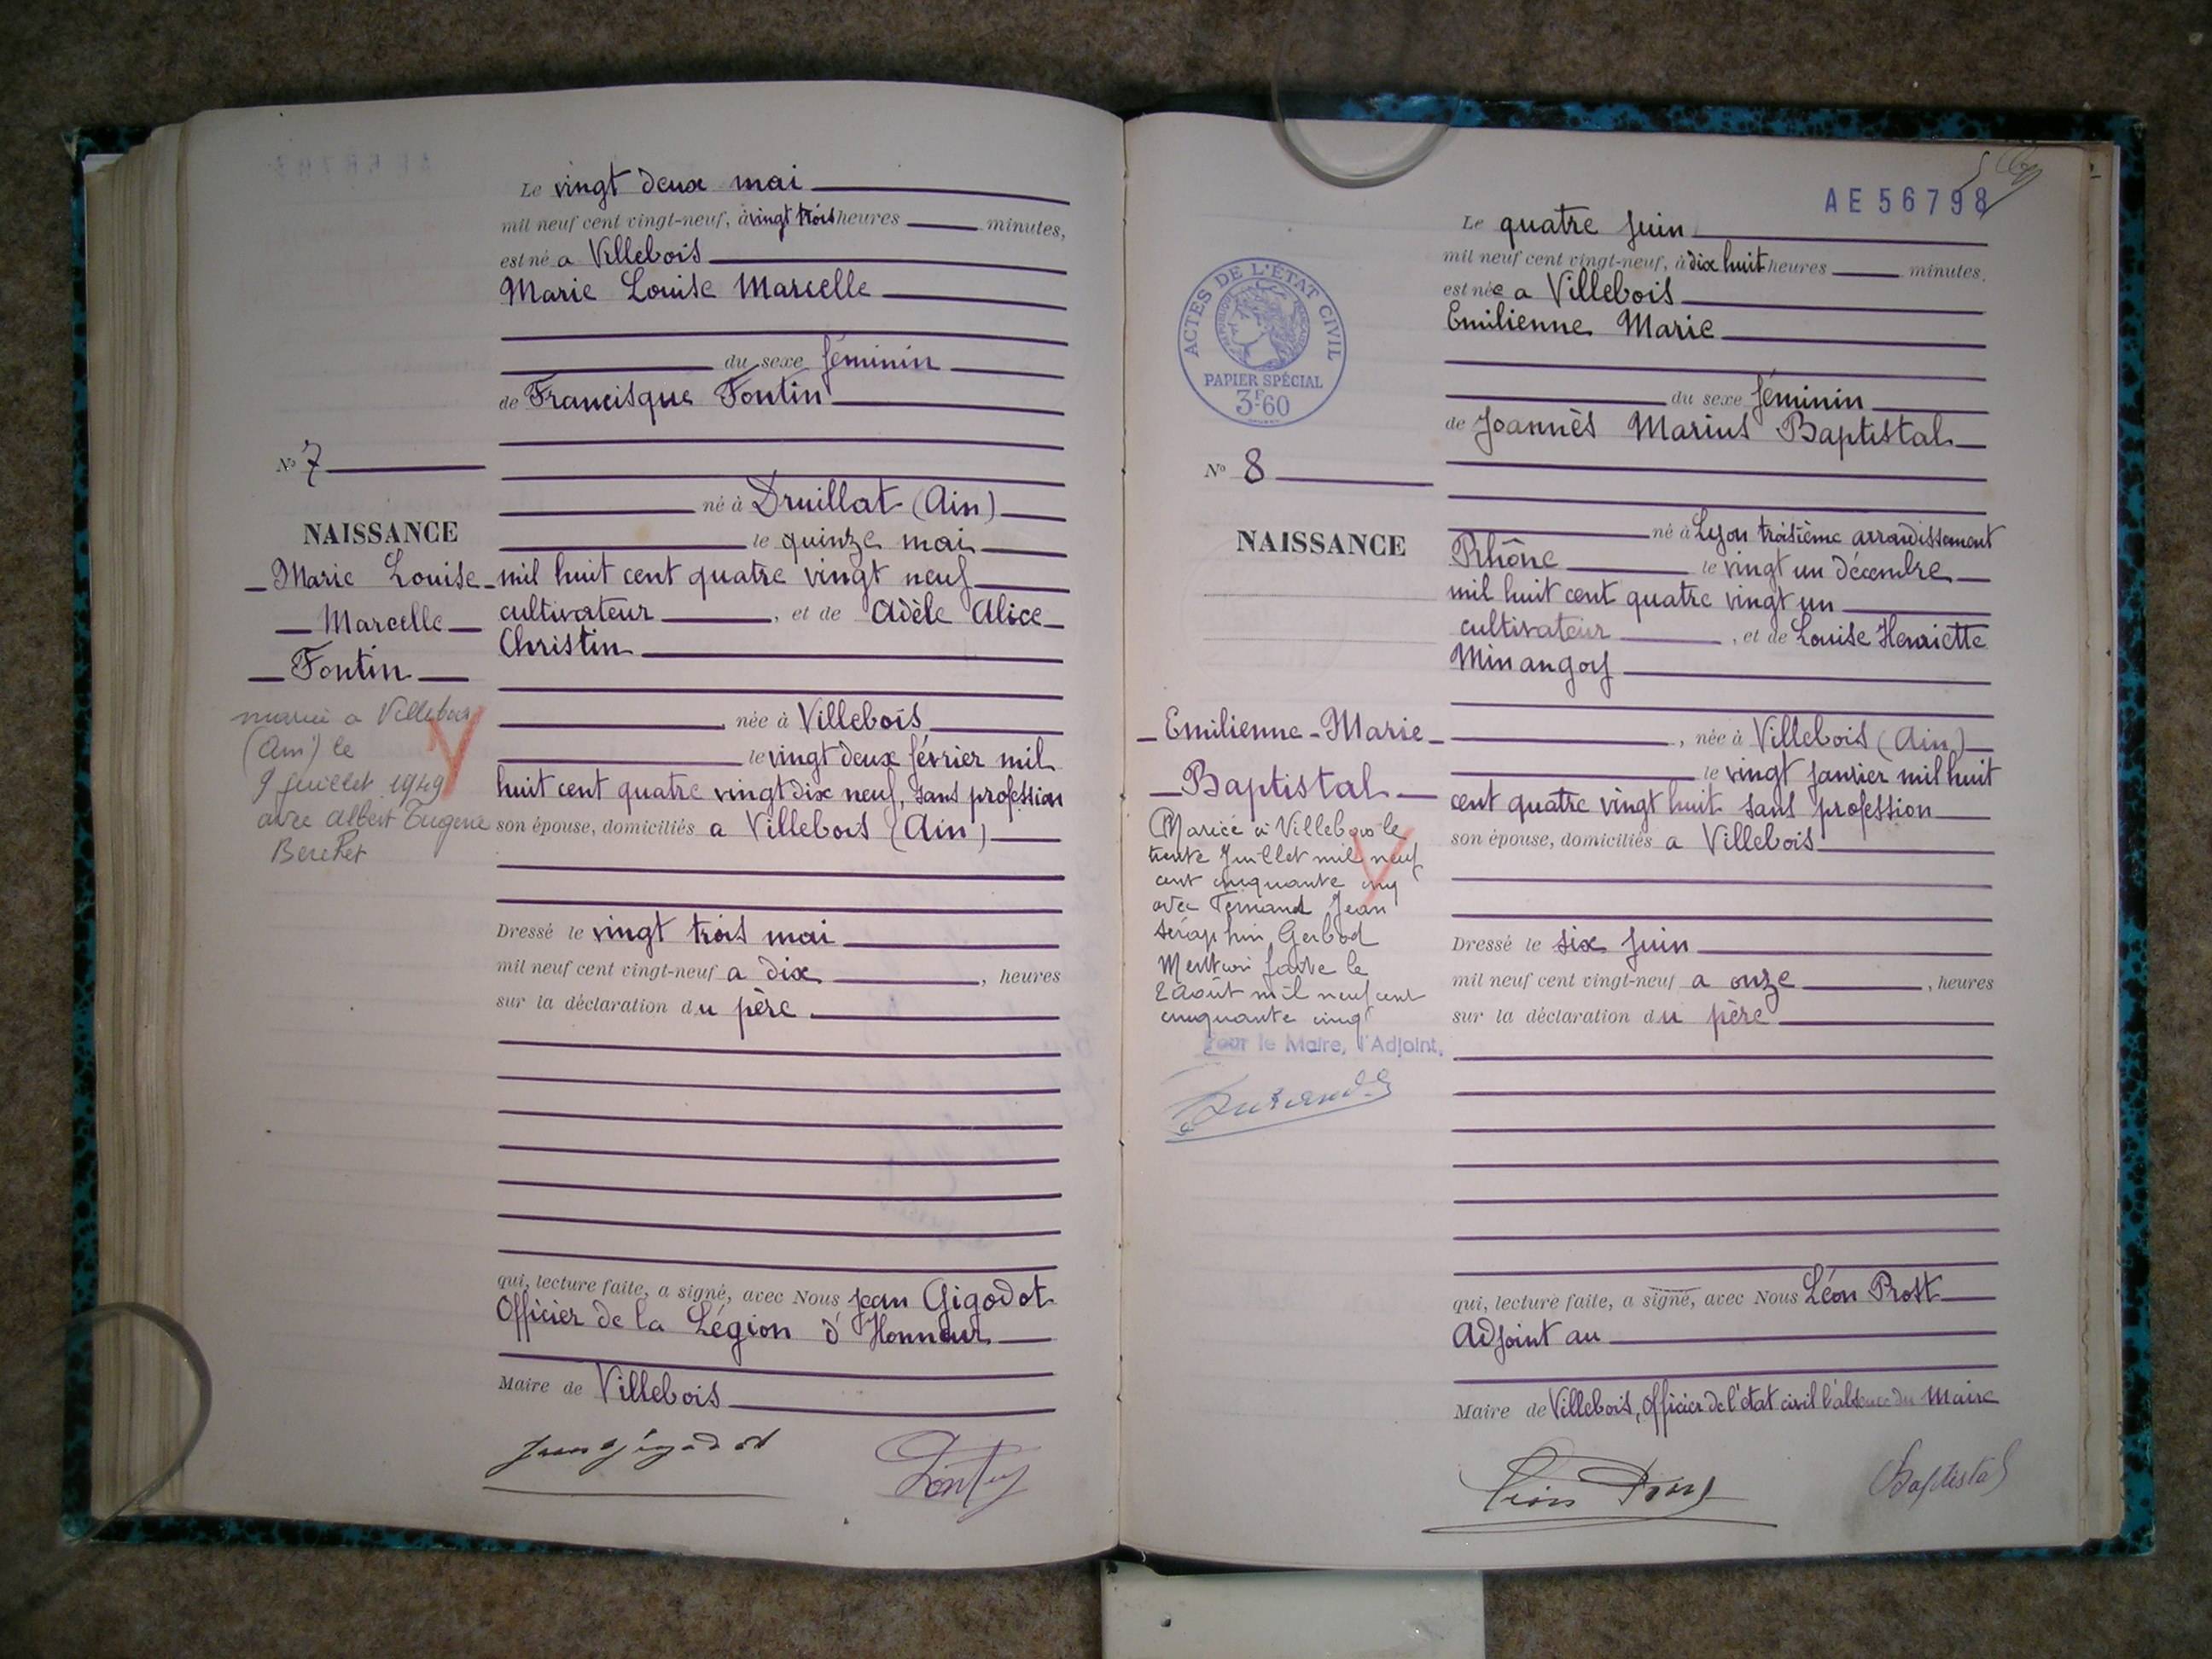 Le vingt deux mai
mil neuf cent vingt-neuf, à vingt trois heures minutes,
est né a Villebois
Marie Louise Marcelle
du sexe féminin
de Francisque Fontin
né à Druillat (Ain)
le quinze mai
mil huit cent quatre vingt neuf
cultivateur, et de Adèle Alice
Christin
, née à Villebois
le vingt deux février mil
huit cent quatre vingt dix neuf, sans profession
son épouse, domiciliés a Villebois (Ain)
Dressé le vingt trois mai
mil neuf cent vingt-neuf a dix, heures
sur la déclaration du père
qui, lecture faite, a signé, avec Nous Jean Gigodot
Officier de la Légion d'Honneur
Maire de Villebois
Jean Gigodot
N° 7
NAISSANCE
Marie Louise
Marcelle
Fontin
mariée a Villebois
(Ain) le
9 juillet 1949
avec Albert Eugene
AE56798
Le quatre juin
mil neuf cent vingt-neuf, à dix huit heures minutes.
est née a Villebois
Emilienne Marie
du sexe féminin
de Joannès Marius Baptistal
né à Lyon troisième arrondissement
Rhône le vingt un décembre
mil huit cent quatre vingt un
cultivateur, et de Louise Henriette
Minangoy
, née à Villebois (Ain)
le vingt janvier mil huit
cent quatre vingt huit sans profession
son épouse, domiciliés a Villebois
Dressé le six juin
mil neuf cent vingt-neuf a onze, heures
sur la déclaration du père
qui, lecture faite, a signé, avec Nous Léon Prost
Adjoint au
Maire de Villebois, Officier de l'état civil l'absence du Maire
Léon Prost
Baptistal
ACTES DE L'ÉTAT CIVIL
PAPIER SPÉCIAL
3F60
N° 8
NAISSANCE
Emilienne-Marie
Baptistal
Mariée à Villebois le
trente Juillet mil neuf
cent cinquante cinq
avec Fernand Jean
Séraphin Gerbod
Mention faite le
2 Août mil neuf cent
cinquante cinq
Pour le Maire, l'Adjoint,